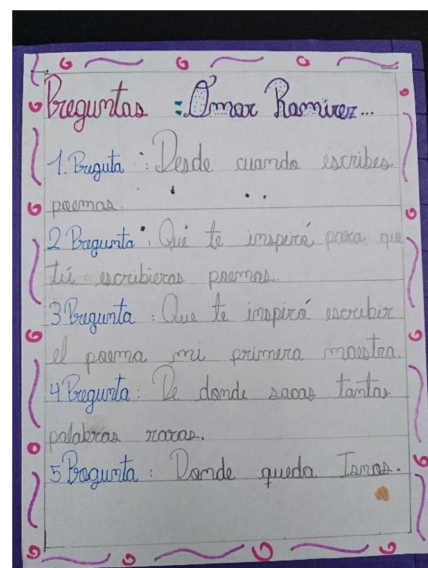 Preguntas :Omar Ramirez...
1. Preguta : Desde cuando escribes
poemas.
2 Pregunta : Qué te inspiró para que
tú escribieras poemas.
3 Pregunta : Que te inspiró escribir
el poema mi primera maestra.
4 Pregunta : De donde sacas tantas
palabras raras.
5 Pregunta : Donde queda